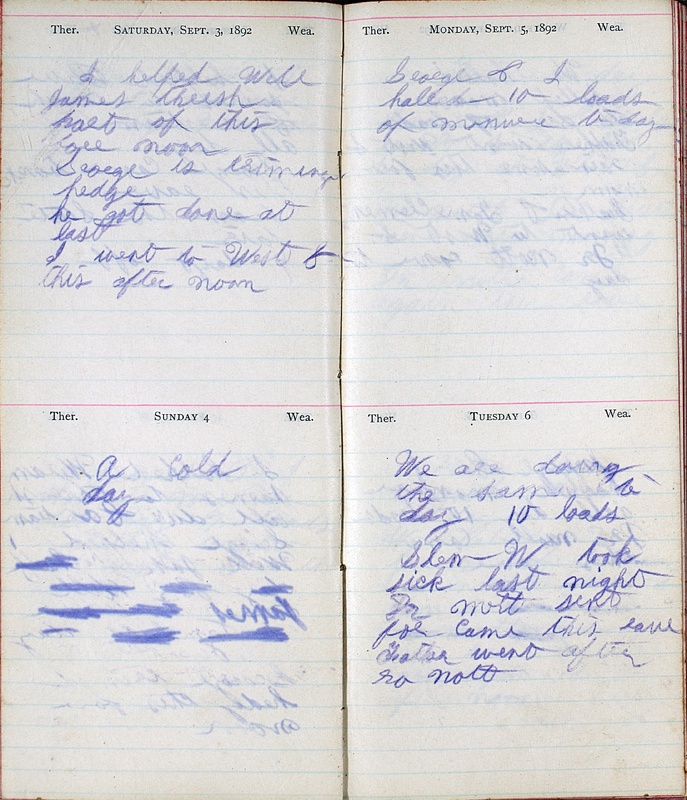 Ther. SATURDAY, SEPT. 3, 1892 Wea.
I helped Will
James thresh
part of this
noon
George is trimming
hedge
he got done at
last
I went to West B
this after noon
Ther. SUNDAY 4 Wea.
A Cold
day
Ther. MONDAY, SEPT. 5, 1892 Wea.
George & I
haled 10 loads
of manure to day
Ther. TUESDAY 6 Wea.
We are doing
the sam to
day 10 loads
Slem W took
sick last night
sent
for came this eave
Father went after